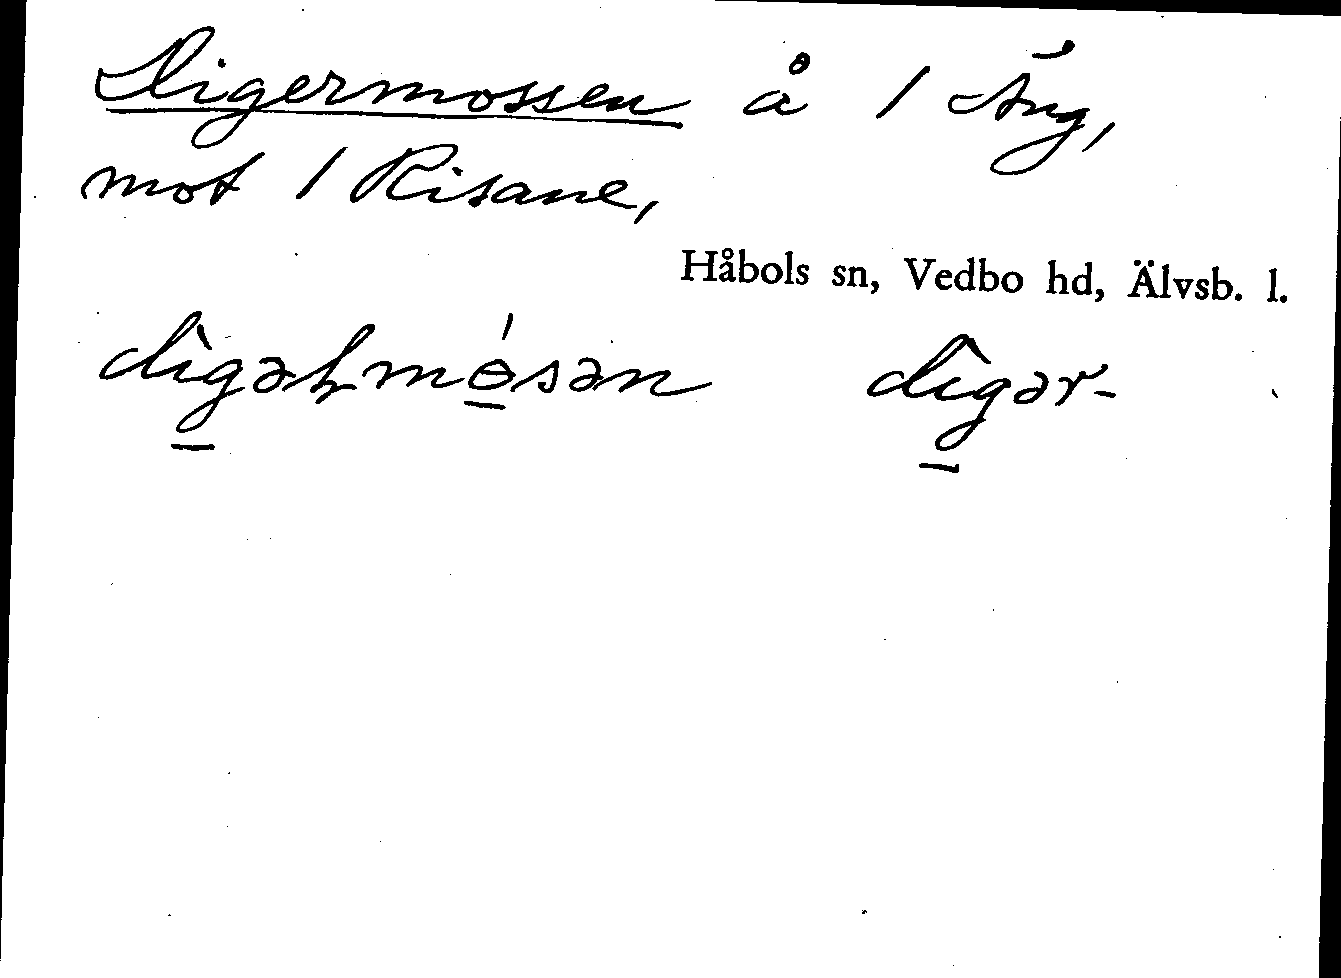 Digermossen å 1 Äng,
mot 1 Risane,
Håbols sn, Vedbo hd, Älvsb. l.
dìgəɫmɵ́sən dìgər-